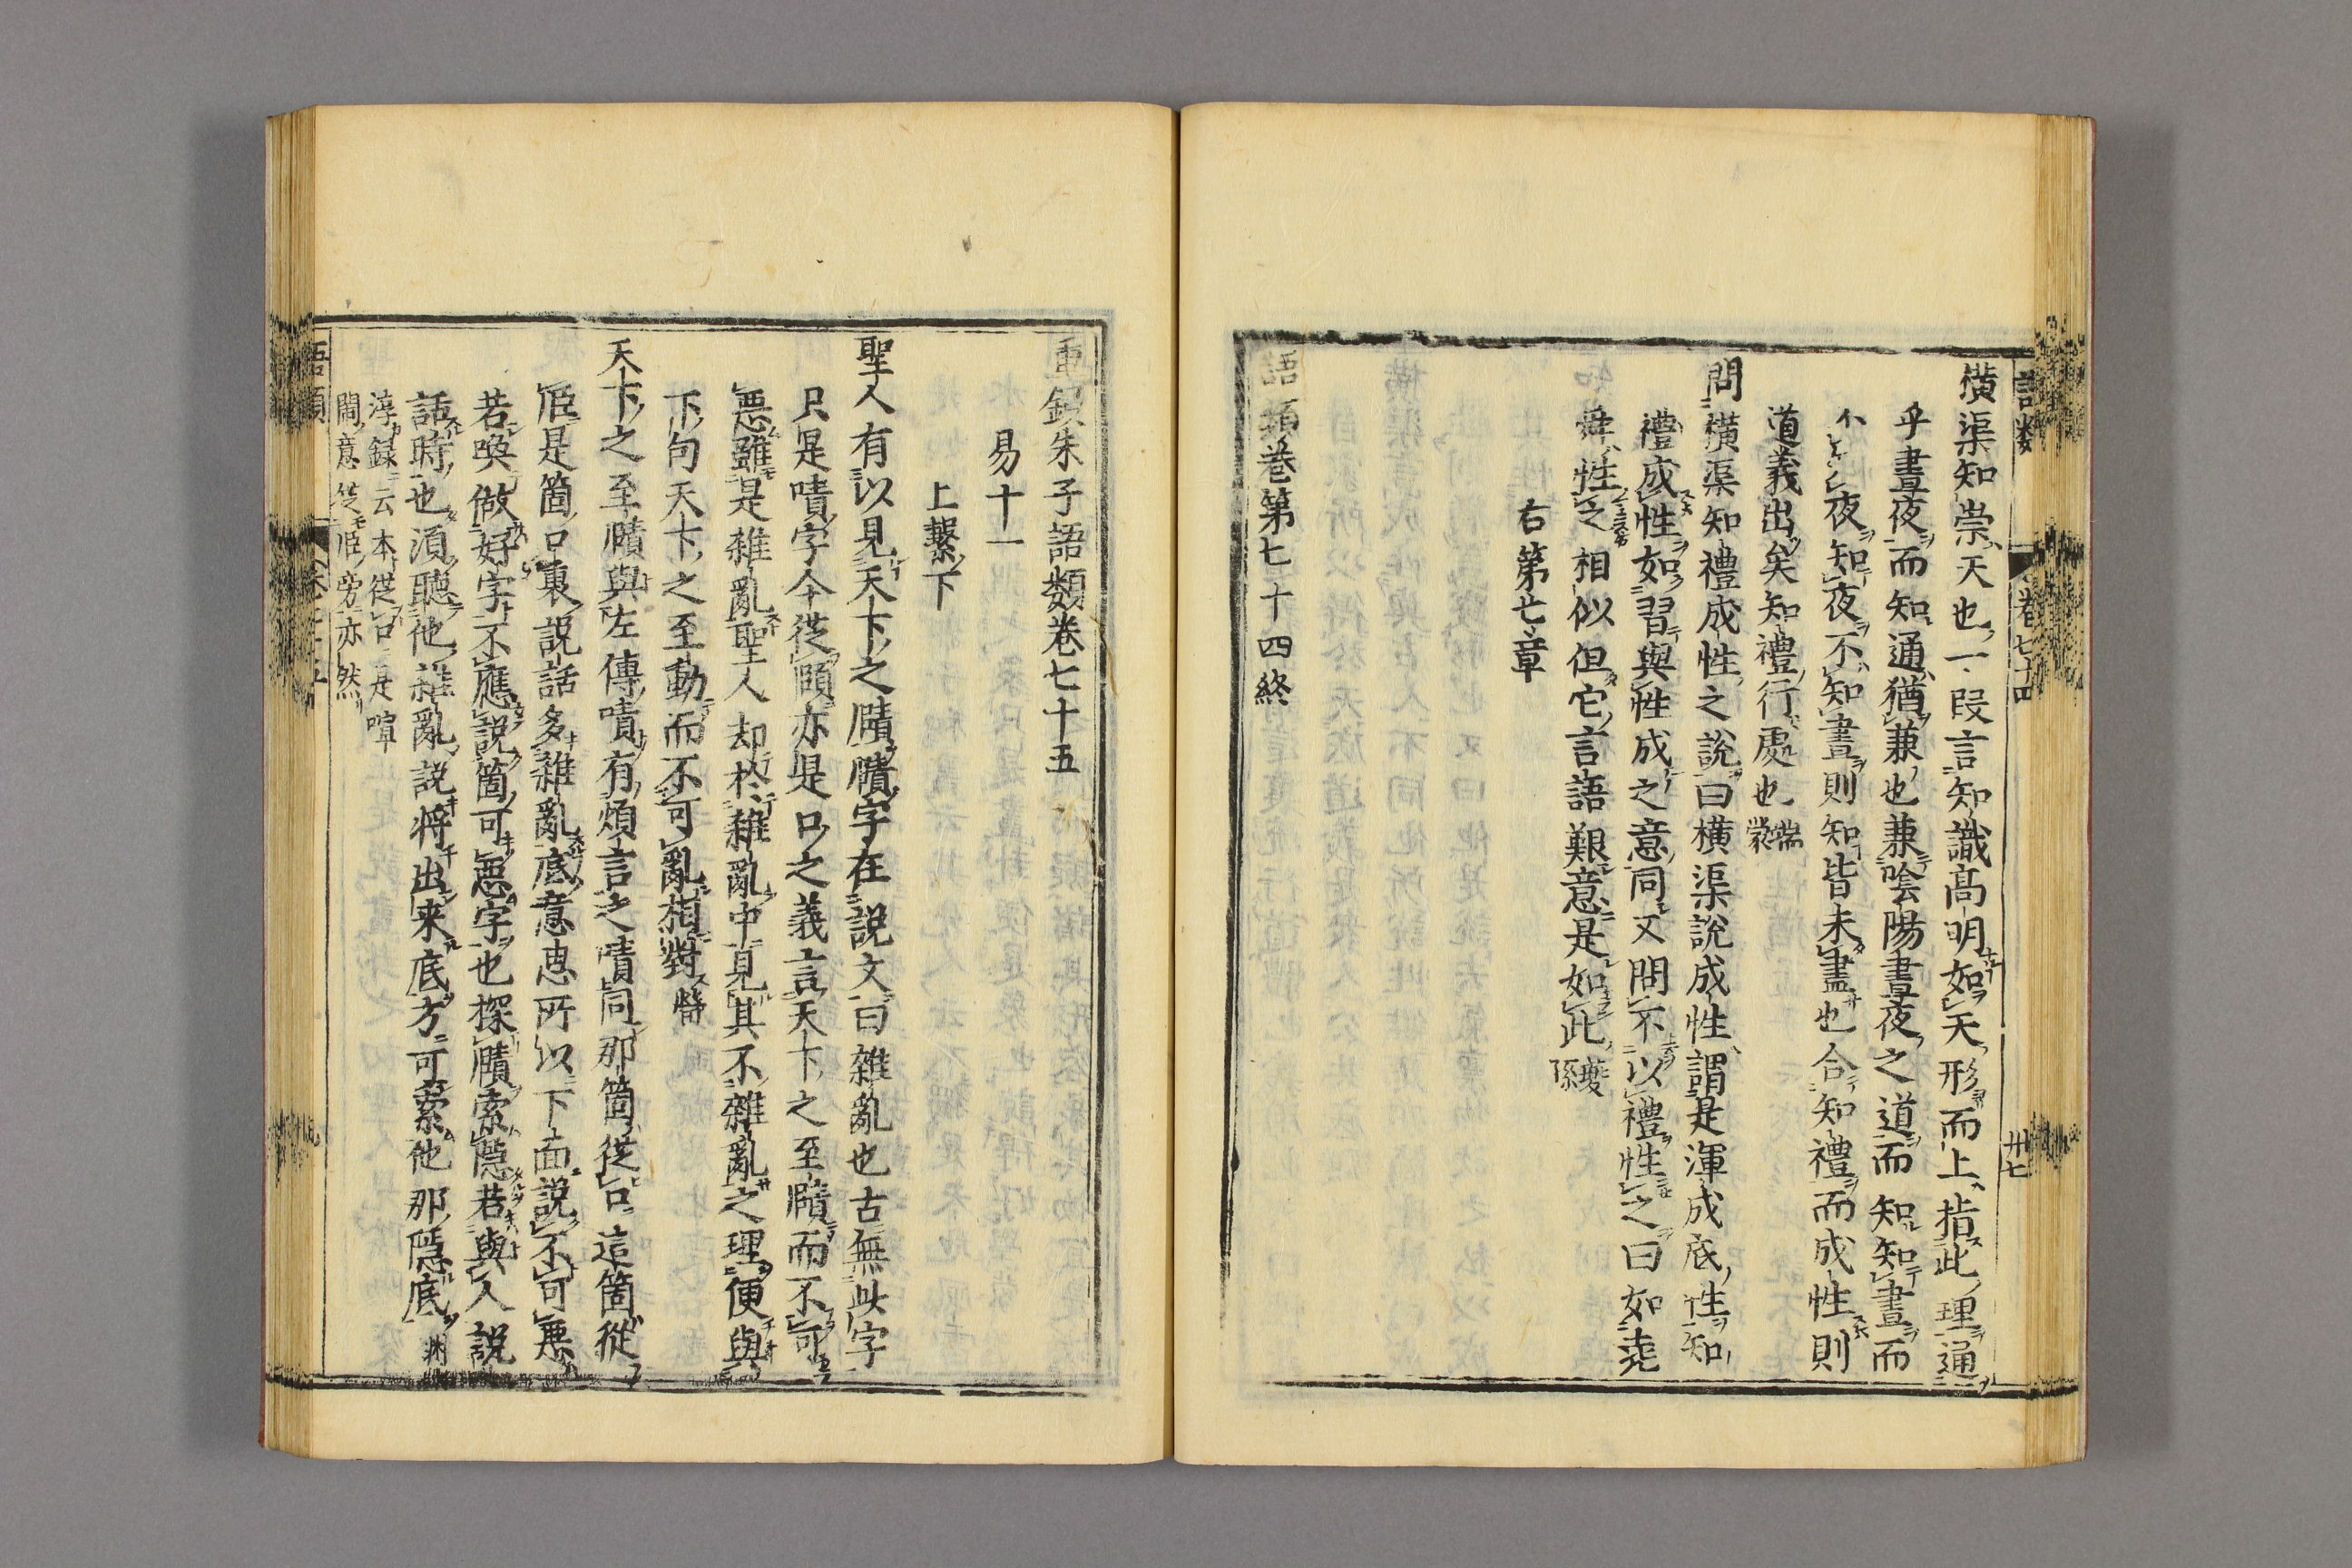 語類
卷七十四
卅七
橫渠知崇天也一段言知識高明如天形而上指此理通
乎晝夜而知通猶兼也兼陰陽晝夜之道而知知晝而
不知夜知夜不知晝則知皆未盡也合知禮而成性則
道義出矣知禮行處也㽦
問橫渠知禮成性之說曰橫渠說成性謂是渾成底性知
禮成性如習與性成之意同又問不以禮性之曰如堯
舜性之相似但它言語艱意是如此
右第七章
語類卷第七十四終
重鋟朱子語類卷七十五
易十一
上繫下
聖人有以見天下之賾賾字在說文曰雜亂也古無此字
只是嘖字今從𦣞亦是口之義言天下之至賾而不可
惡雖是雜亂聖人却於雜亂中見其不雜亂之理便與
下句天下之至動而不可亂相對
天下之至賾與左傳嘖有煩言之嘖同那箇從口這箇從
𦣞是箇口裏說話多雜亂底意思所以下面說不可惡
若喚做好字不應說箇可惡字也探賾索隱若與人說
話時也須聽他雜亂說將出來底方可索他那隱底淵
淳錄云本從口是喧
鬧意從𦣞旁亦然
語類